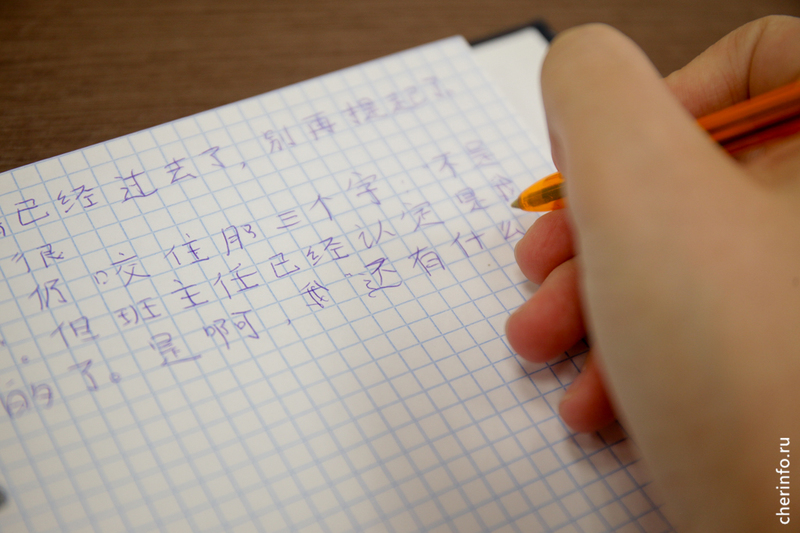 已经过去了，别再提起了
很
仍咬住那三个字：不是
但班主任已经认定是我
的了。是啊，我还有什么